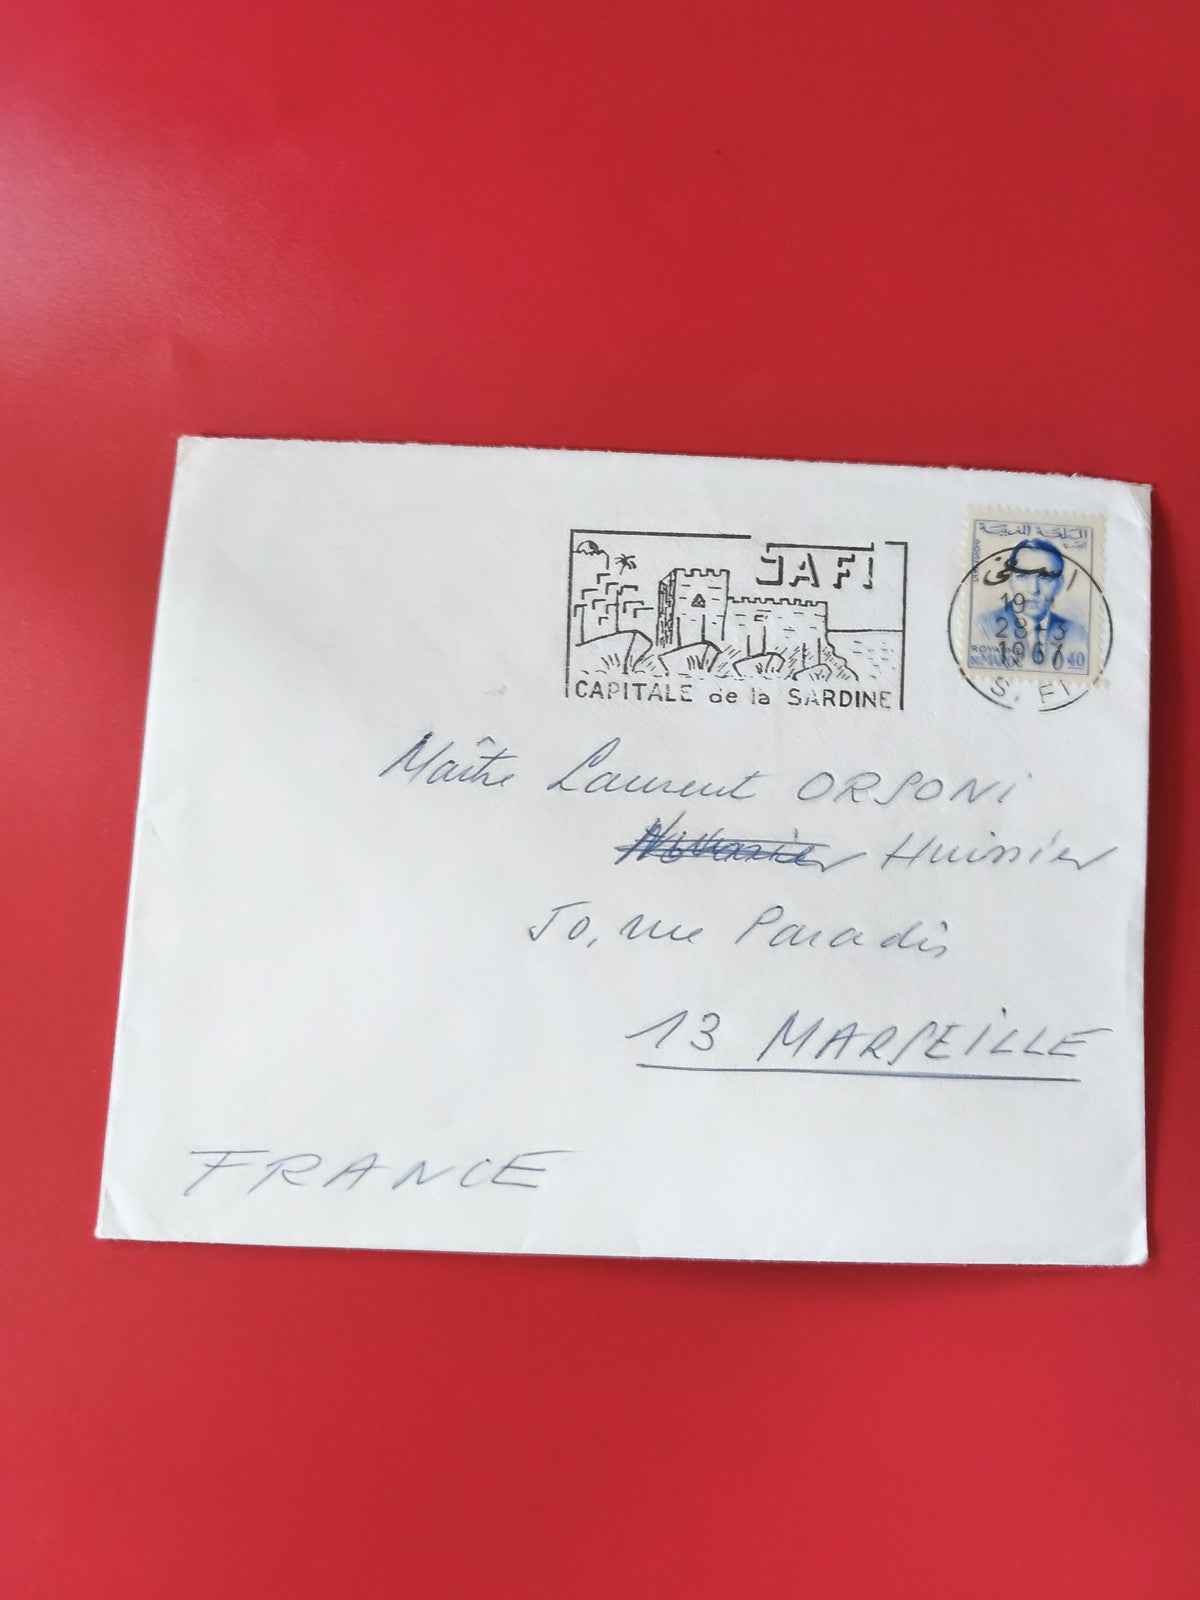 SAFI
CAPITALE de la SARDINE
المملكة المغربية
POSTES
ROYAUME
DU MAROC
0,40
اسفي
19
28-3
1967
SAFI
Maître Laurent ORSONI
Notaire Huissier
50, rue Paradis
13 MARSEILLE
FRANCE